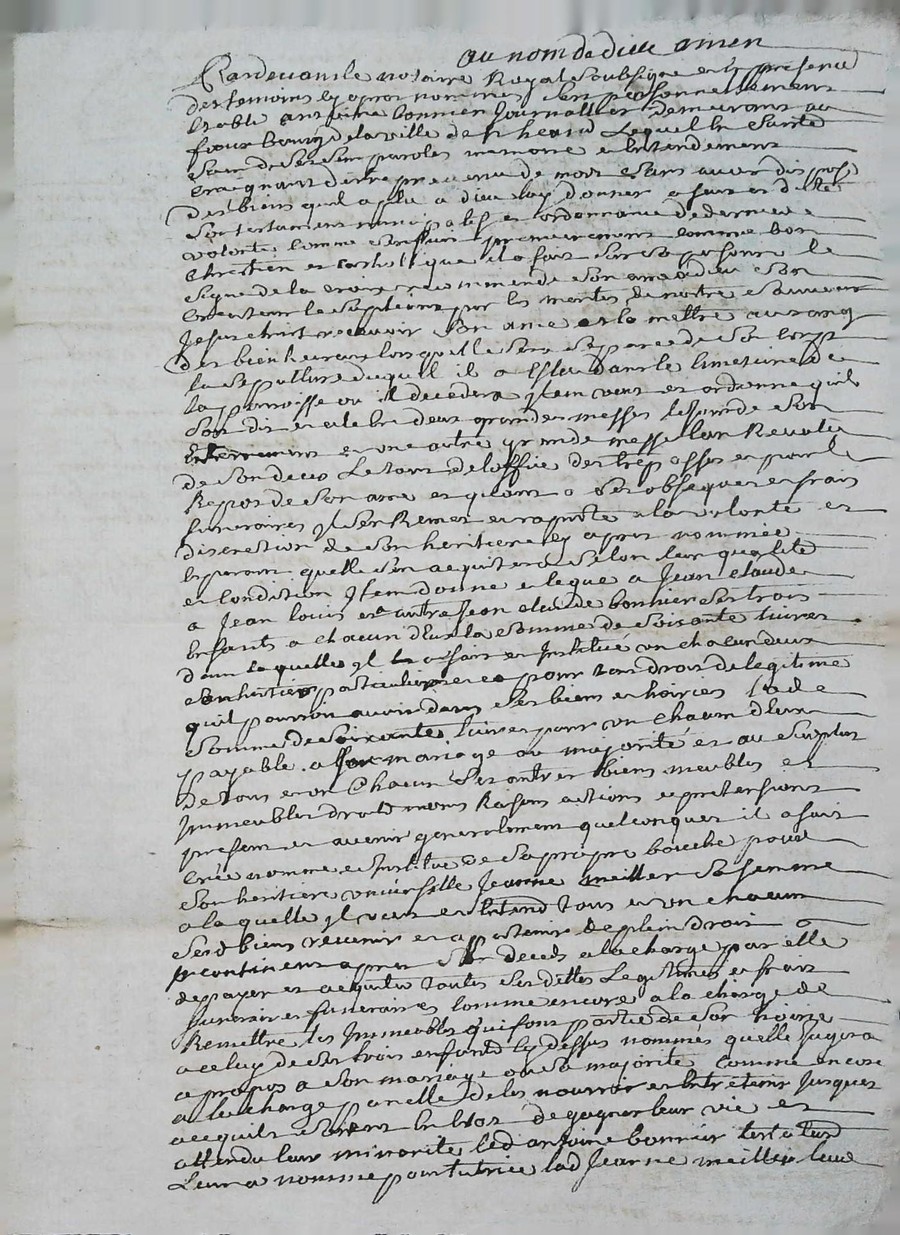 au nom de dieu amen
Pardevant le notaire Royal soubsigne et en presence
des temoins cy apres nommes s'est personnellement
estably antoine bonnier Journallier demeurant au
faux bourg de la ville de st heand Lequel en sante
estant de ses sens paroles memoire et entendement
craignant destre prevenu de mort et sans avoir dispose
des biens qu'il a plu a dieu luy donner a fait et dicte
son testament nuncupatif et ordonnance de derniere
volonte comme sensuit premierement comme bon
chretien et catholique il a fait sur sa personne le
signe de la croix recommande son ame a dieu son
createur le supliant par les merites de notre sauveur
Jesus christ recevoir son ame et la mettre au rang
des bienheureux lors quelle sera separee de son corps
la sepulture duquel il a esleu dans le cimetiere de
la parroisse ou il decedera Item veut et ordonne quil
soit dit et celebre deux grandes messes le jour de son
enterrement et une autre grande messe l'an Revolu
de son deces Le tout de loffice des trepasses et pour le
Repos de son ame et quant a ses obseques et frais
funeraires Il s'en Remet et raporte a la volonte et
discretion de son heritiere cy apres nommee
esperant quelle s'en acquitera selon leur qualite
et condition Item donne et legue a Jean claude
a Jean louis et autre Jean claude bonnier ses trois
enfants a chacun d'eux la somme de soixante livres
dans laquelle Il les a fait et Institué un chacun deux
ses heritiers particuliers et ce pour tous droits de legitime
quil pourroit avoir dans ses biens et hoiries lade
somme de soixante livres pour un chacun d'eux
payable a leur mariage ou majorité et au surplus
de tous et un chacun ses autres biens meubles et
Immeubles droits noms Raisons actions et pretensions
present et avenir generalement quelconques il a fait
créé nomme et Institue de sa propre bouche pour
son heritiere universelle Jeanne meiller sa femme
a laquelle Il veut et entend tous et un chacun
sesd biens revenir et appartenir de plein droit
incontinent apres son deces a la charge par elle
de payer et acquiter toutes ses dettes Legitimes et frais
funeraires comme encores a la charge de
Remettre les Immeubles qui font partie de son hoirie
a celuy de ses trois enfants cy dessus nommés quelle Jugera
a propos a son mariage ou sa majorite comme encore
a la charge par elle de les nourrir et entretenir Jusques
a ce quils soient en etat de gagner leur vie et
attendu leur minorite led antoine bonnier testateur
leur a nomme pour tutrice lad Jeanne meiller leur